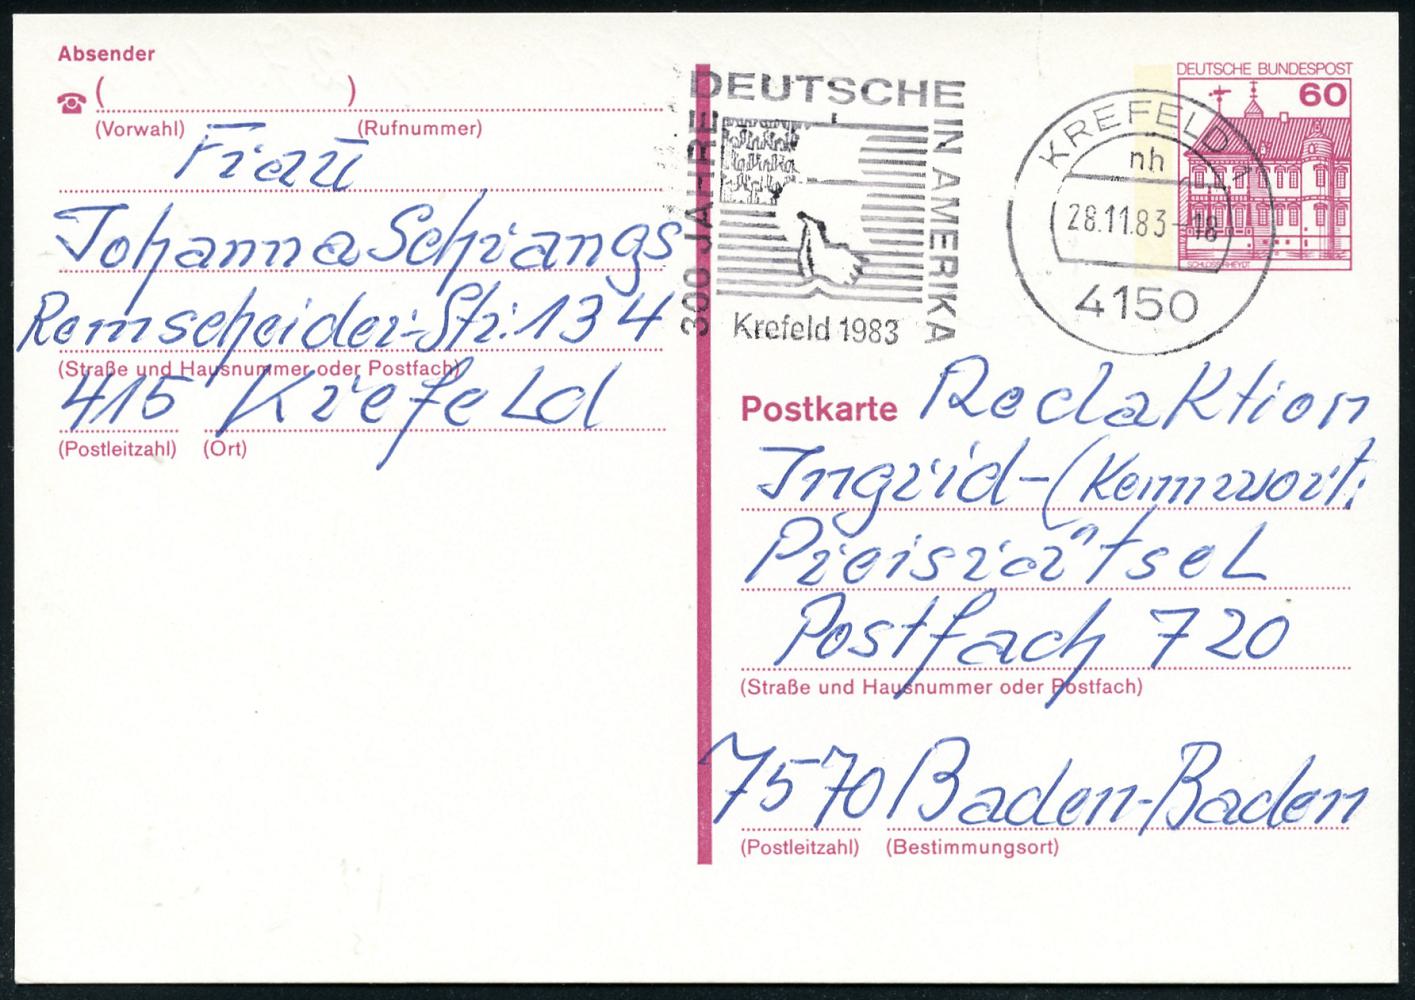 Absender
( )
(Vorwahl) (Rufnummer)
Frau
Johanna Schrangs
Remscheider-Str. 134
(Straße und Hausnummer oder Postfach)
415 Krefeld
(Postleitzahl) (Ort)
300 JAHRE DEUTSCHE IN AMERIKA
Krefeld 1983
KREFELD 1
nh
28.11.83-18
4150
DEUTSCHE BUNDESPOST
60
SCHLOSS RHEYDT
Postkarte Redaktion
Ingrid-(Kennwort:
Preisrätsel
Postfach 720
(Straße und Hausnummer oder Postfach)
7570 Baden-Baden
(Postleitzahl) (Bestimmungsort)